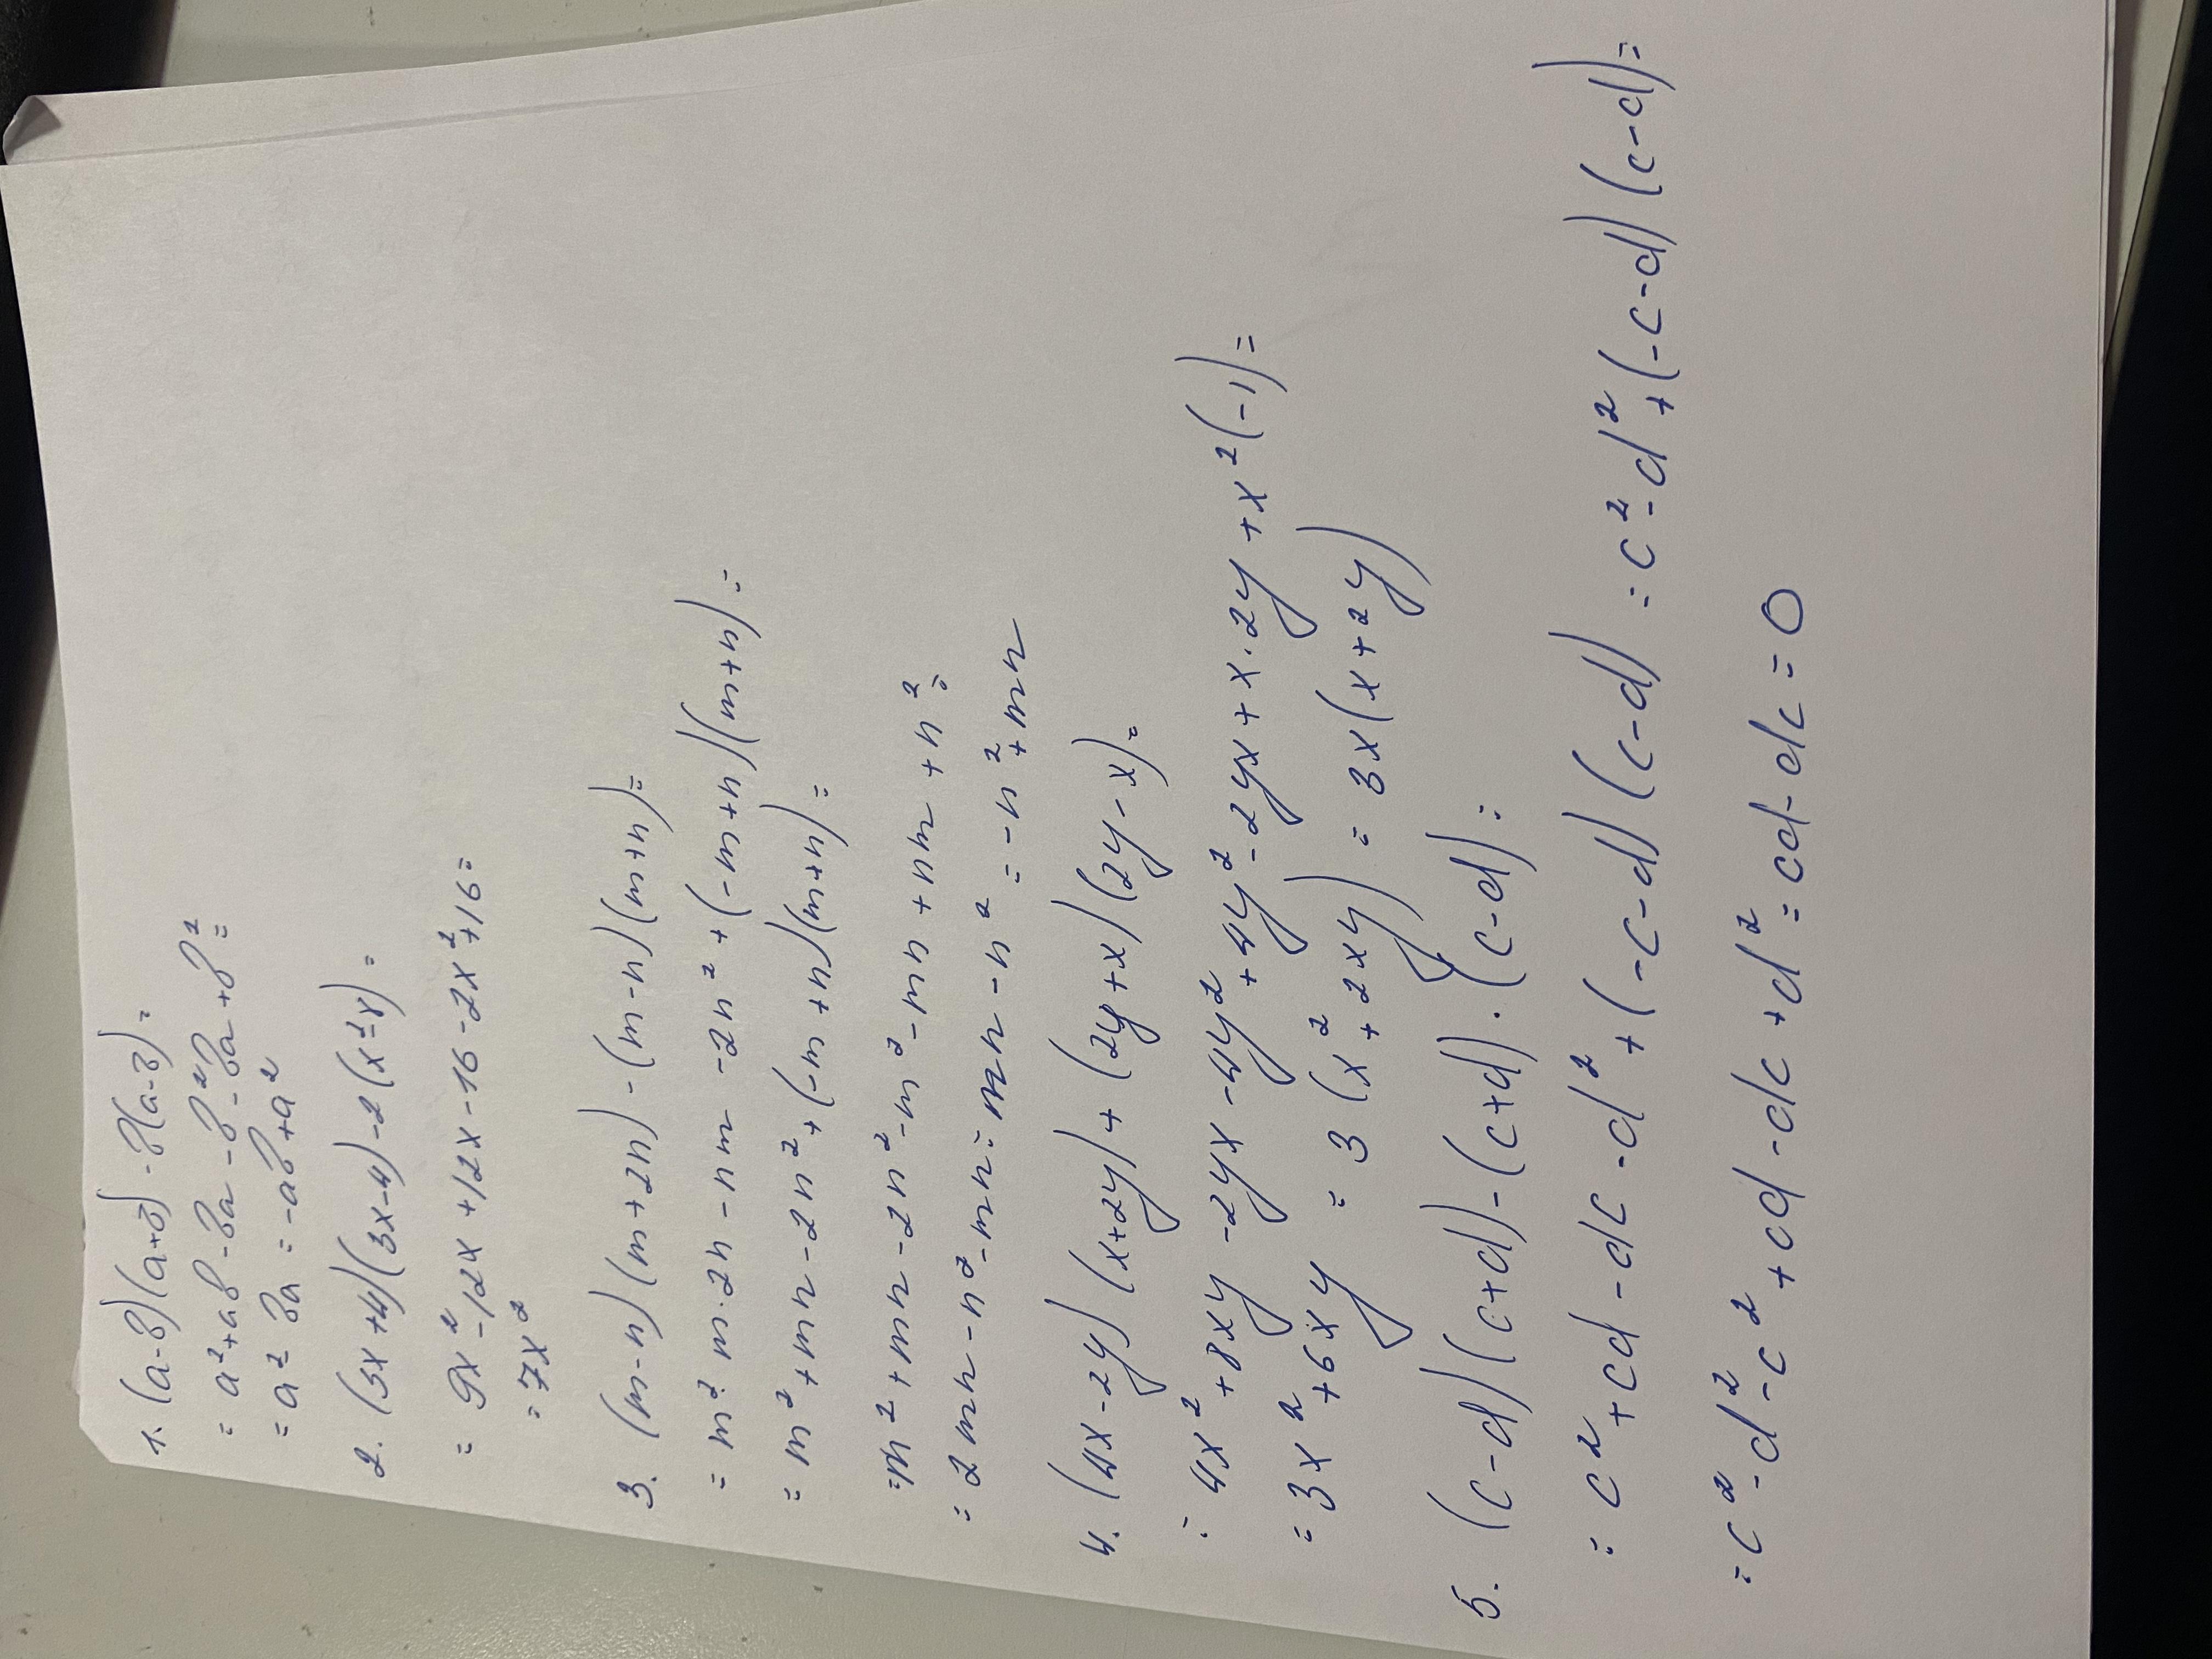 1. (a-b)(a+b) -b(a-b)=
= a²+ab-ba-b²-ba+b²=
= a² - ba = -ab+a²
2. (3x+4)(3x-4)-2(x²-8)=
= 9x²-12x+12x-16-2x²+16=
= 7x²
3. (m-n)(m+2n)-(m-n)(m+n)=
= m²+m·2n-nm-2n²+(-m+n)(m+n)=
= m²+mn-2n²+(-m+n)(m+n)=
=m²+mn-2n²-m²-mn+nm+n²=
= 2mn-n²-mn=mn-n² = -n²+mn
4. (4x-2y)(x+2y)+(2y+x)(2y-x)=
= 4x²+8xy-2yx-4y²+4y²-2yx+x·2y+x²(-1)=
= 3x²+6xy = 3(x²+2xy) = 3x(x+2y)
5. (c-d)(c+d)-(c+d)·(c-d)=
= c²+cd-dc-d²+(-c-d)(c-d) = c²-d²+(-c-d)(c-d)=
=c²-d²-c²+cd-dc+d²=cd-dc=0